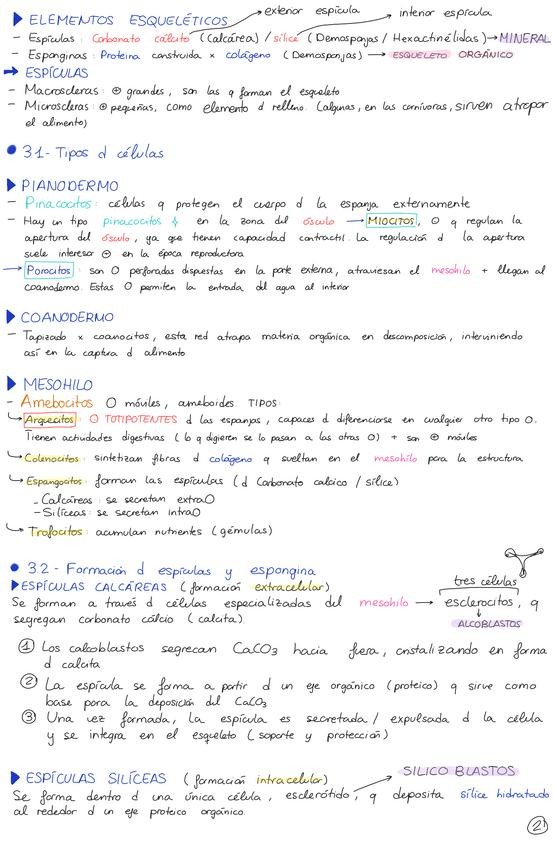 exterior espícula interior espícula
▶ ELEMENTOS ESQUELÉTICOS
- Espículas: Carbonato cálcito (Calcárea) / sílice (Demosponjas / Hexactinélidas) → MINERAL
- Esponginas: Proteína construida x colágeno (Demosponjas) → ESQUELETO ORGÁNICO
→ ESPÍCULAS
- Macroscleras: ⊕ grandes, son las q forman el esqueleto
- Microscleras: ⊕ pequeñas, como elemento d relleno. (algunas, en las carnívoras, sirven atrapar
el alimento)
• 3.1- Tipos d células
▶ PIANODERMO
- Pinacocitos: células q protegen el cuerpo d la esponja externamente
- Hay un tipo pinacocitos en la zona del ósculo → MIOCITOS, O q regulan la
apertura del ósculo, ya que tienen capacidad contractil. La regulación d la apertura
suele interesar ⊖ en la época reproductora
→ Porocitos: son O perforadas dispuestas en la parte externa, atraviesan el mesohilo + llegan al
coanodermo. Estas O permiten la entrada del agua al interior
▶ COANODERMO
- Tapizado x coanocitos, esta red atrapa materia orgánica en descomposición, interviniendo
así en la captura d alimento
▶ MESOHILO
- Amebocitos O móviles, ameboides. TIPOS:
→ Arquecitos: O TOTIPOTENTES d las esponjas, capaces d diferenciarse en cualquier otro tipo O.
Tienen actividades digestivas (lo q digieren se lo pasan a las otras O) + son ⊕ móviles
→ Colenocitos: sintetizan fibras d colágeno q sueltan en el mesohilo para la estructura
→ Espongocitos: forman las espículas (d Carbonato calcico / sílice)
- Calcáreas: se secretan extraO
- Silíceas: se secretan intraO
→ Trofocitos: acumulan nutrientes (gémulas)
• 3.2- Formación d espículas y espongina
▶ ESPÍCULAS CALCÁREAS (formación extracelular) tres células
Se forman a través d células especializadas del mesohilo → esclerocitos, q
segregan carbonato cálcio (calcita) ALCOBLASTOS
① Los calcoblastos segrecan CaCO3 hacia fuera, cristalizando en forma
d calcita
② La espícula se forma a partir d un eje orgánico (proteico) q sirve como
base para la deposición del CaCO3
③ Una vez formada, la espícula es secretada / expulsada d la célula
y se integra en el esqueleto (soporte y protección)
▶ ESPÍCULAS SILÍCEAS (formación intracelular) SILICO BLASTOS
Se forma dentro d una única célula, esclerótido, q deposita sílice hidratado
al rededor d un eje proteico orgánico.
②